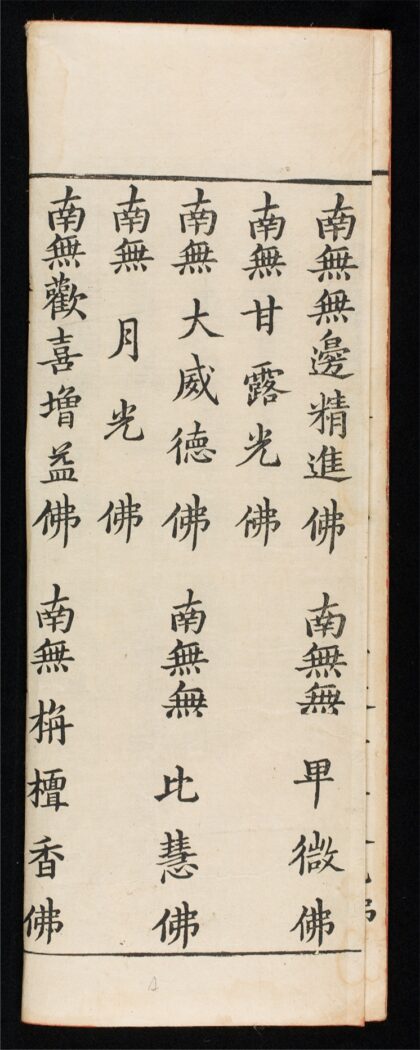 南無無邊精進佛　南無無甲微佛
南無甘露光佛
南無大威德佛　南無無比慧佛
南無月光佛
南無歡喜增益佛　南無栴檀香佛